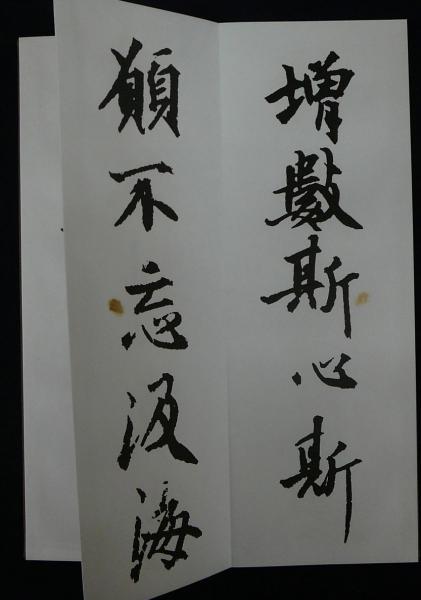 增歎斯心斯
願不忘汲海